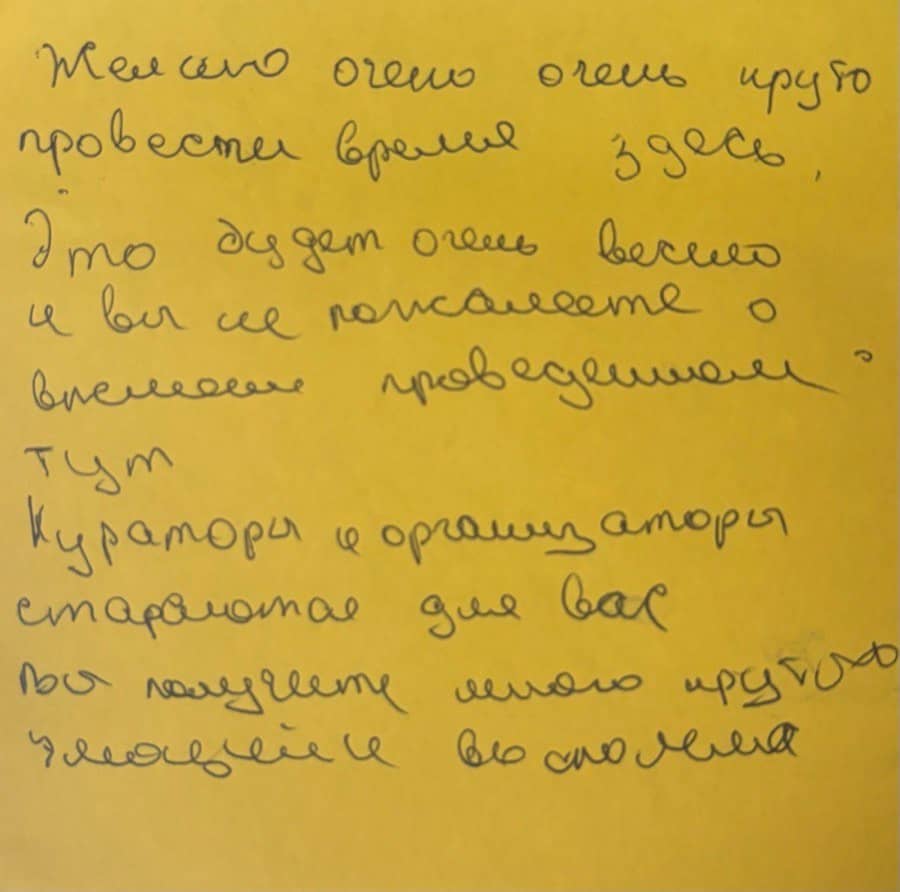 Желаю очень очень круто
провести время здесь,
Это будет очень весело
и вы не пожалеете о
времени проведенном
тут
Кураторы и организаторы
стараются для вас
вы получите много крутых
эмоций и воспомина